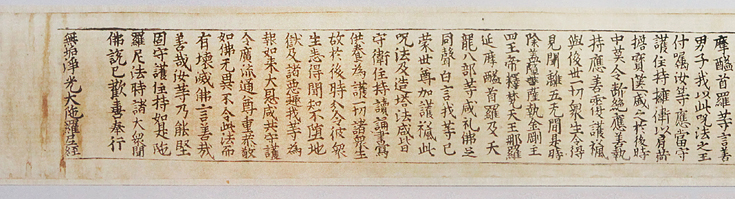 摩醯首羅等言善
男子我以此呪法之王
付囑汝等應當守
護住持擁衛以肩荷
擔寶篋盛之於後時
中莫令斷絶應善執
持應善覆護授
與後世一切衆生令得
見聞離五无間是時
除蓋障菩薩執金剛主
四王帝釋梵天王那羅
延摩醯首羅及天
龍八部等咸礼佛足
同聲白言我等已
蒙世尊加護授此
呪法及造塔法咸皆
守衛住持讀誦書寫
供養為護一切諸衆生
故於後時分令彼衆
生悉得聞知不墮地
獄及諸惡趣我等為
報如来大恩咸共守護
令廣流通尊重恭敬
如佛无異不令此法而
有壞滅佛言善哉
善哉汝等乃能堅
固守護住持如是陁
羅尼法時諸大衆聞
佛說已歡喜奉行
無垢淨光大陁羅尼經